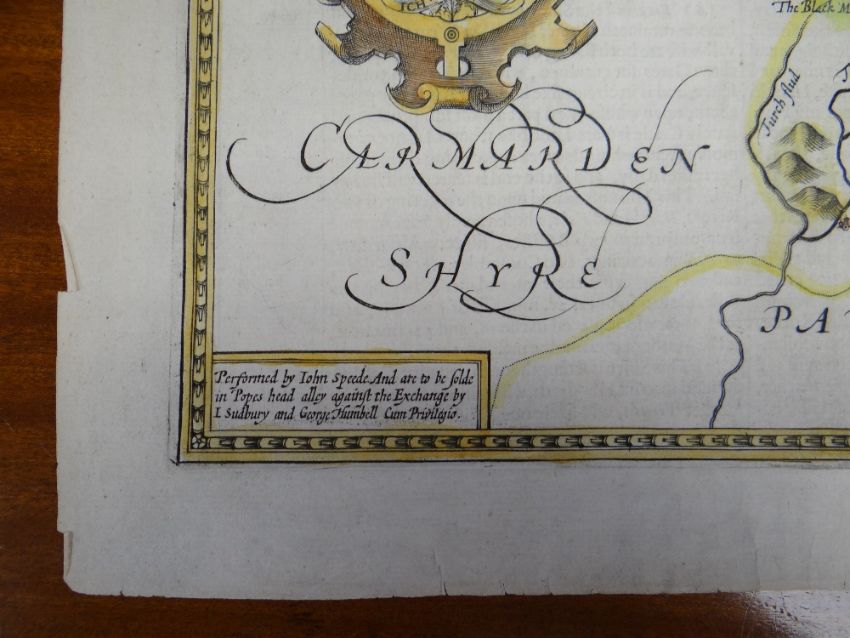 The Black M
ICH
Turch flud
CÆRMARDEN
SHYRE
PA
Performed by Iohn Speede. And are to be solde
in Popes head alley against the Exchange by
I. Sudbury and George Humbell Cum Privilegio.